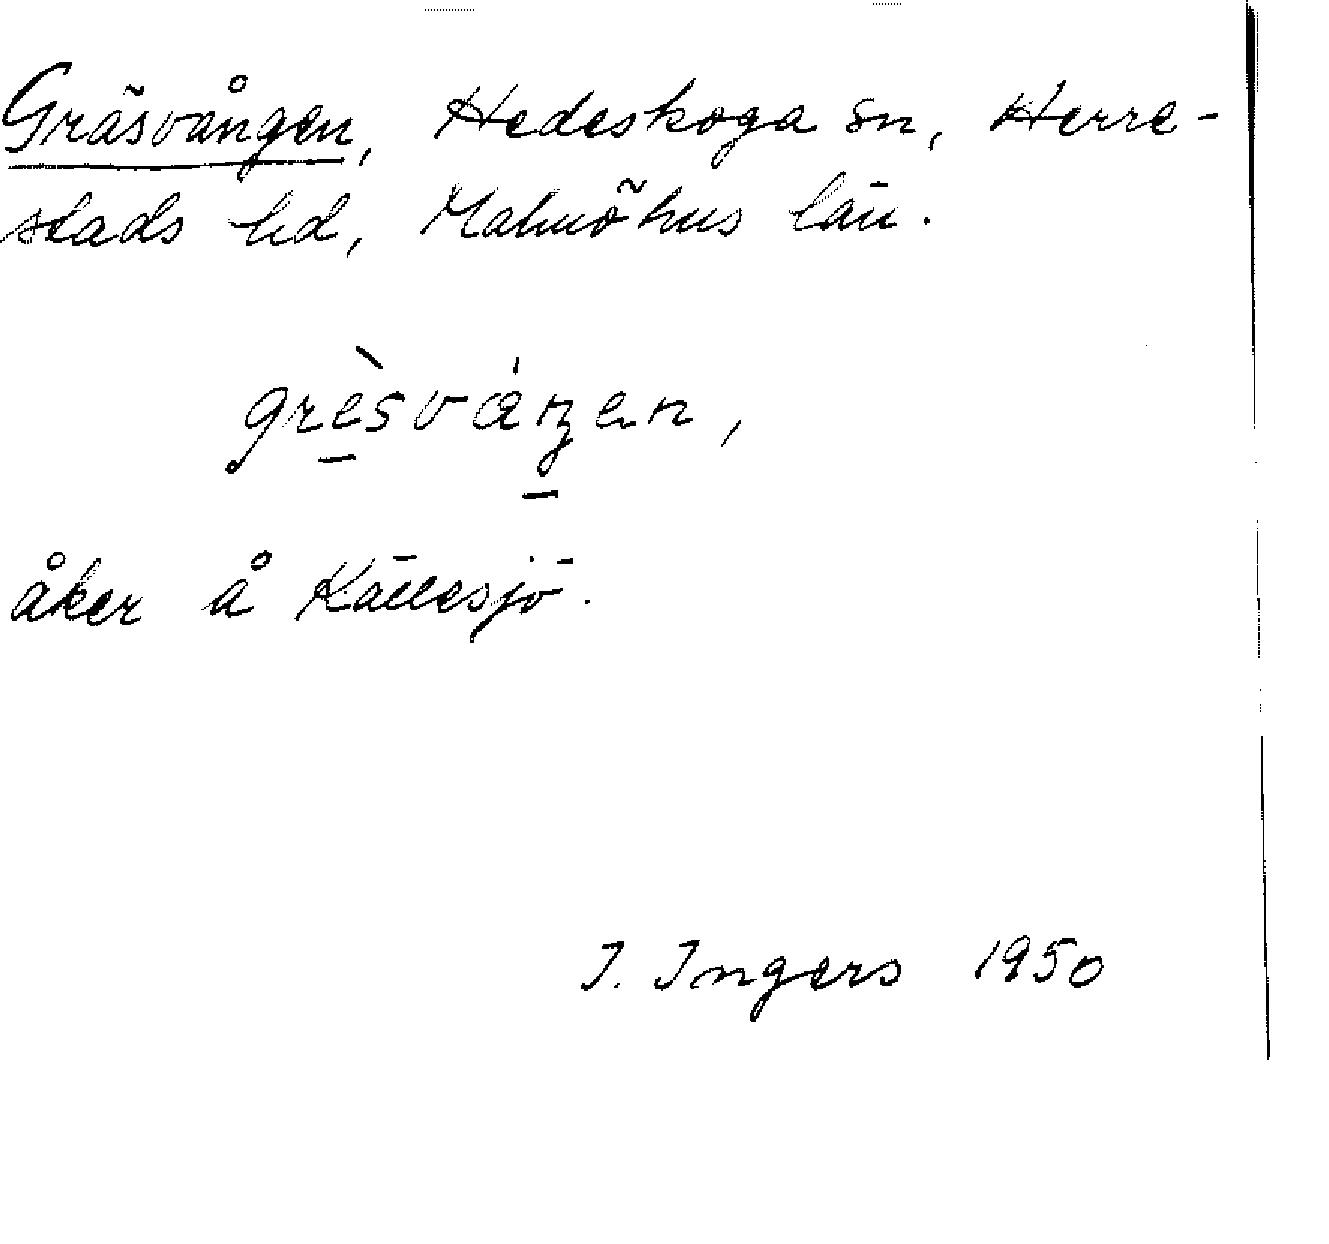 Gräsvången, Hedeskoga sn, Herre-
stads hd, Malmöhus län.
grèsváŋen,
åker å Källesjö.
I. Ingers 1950